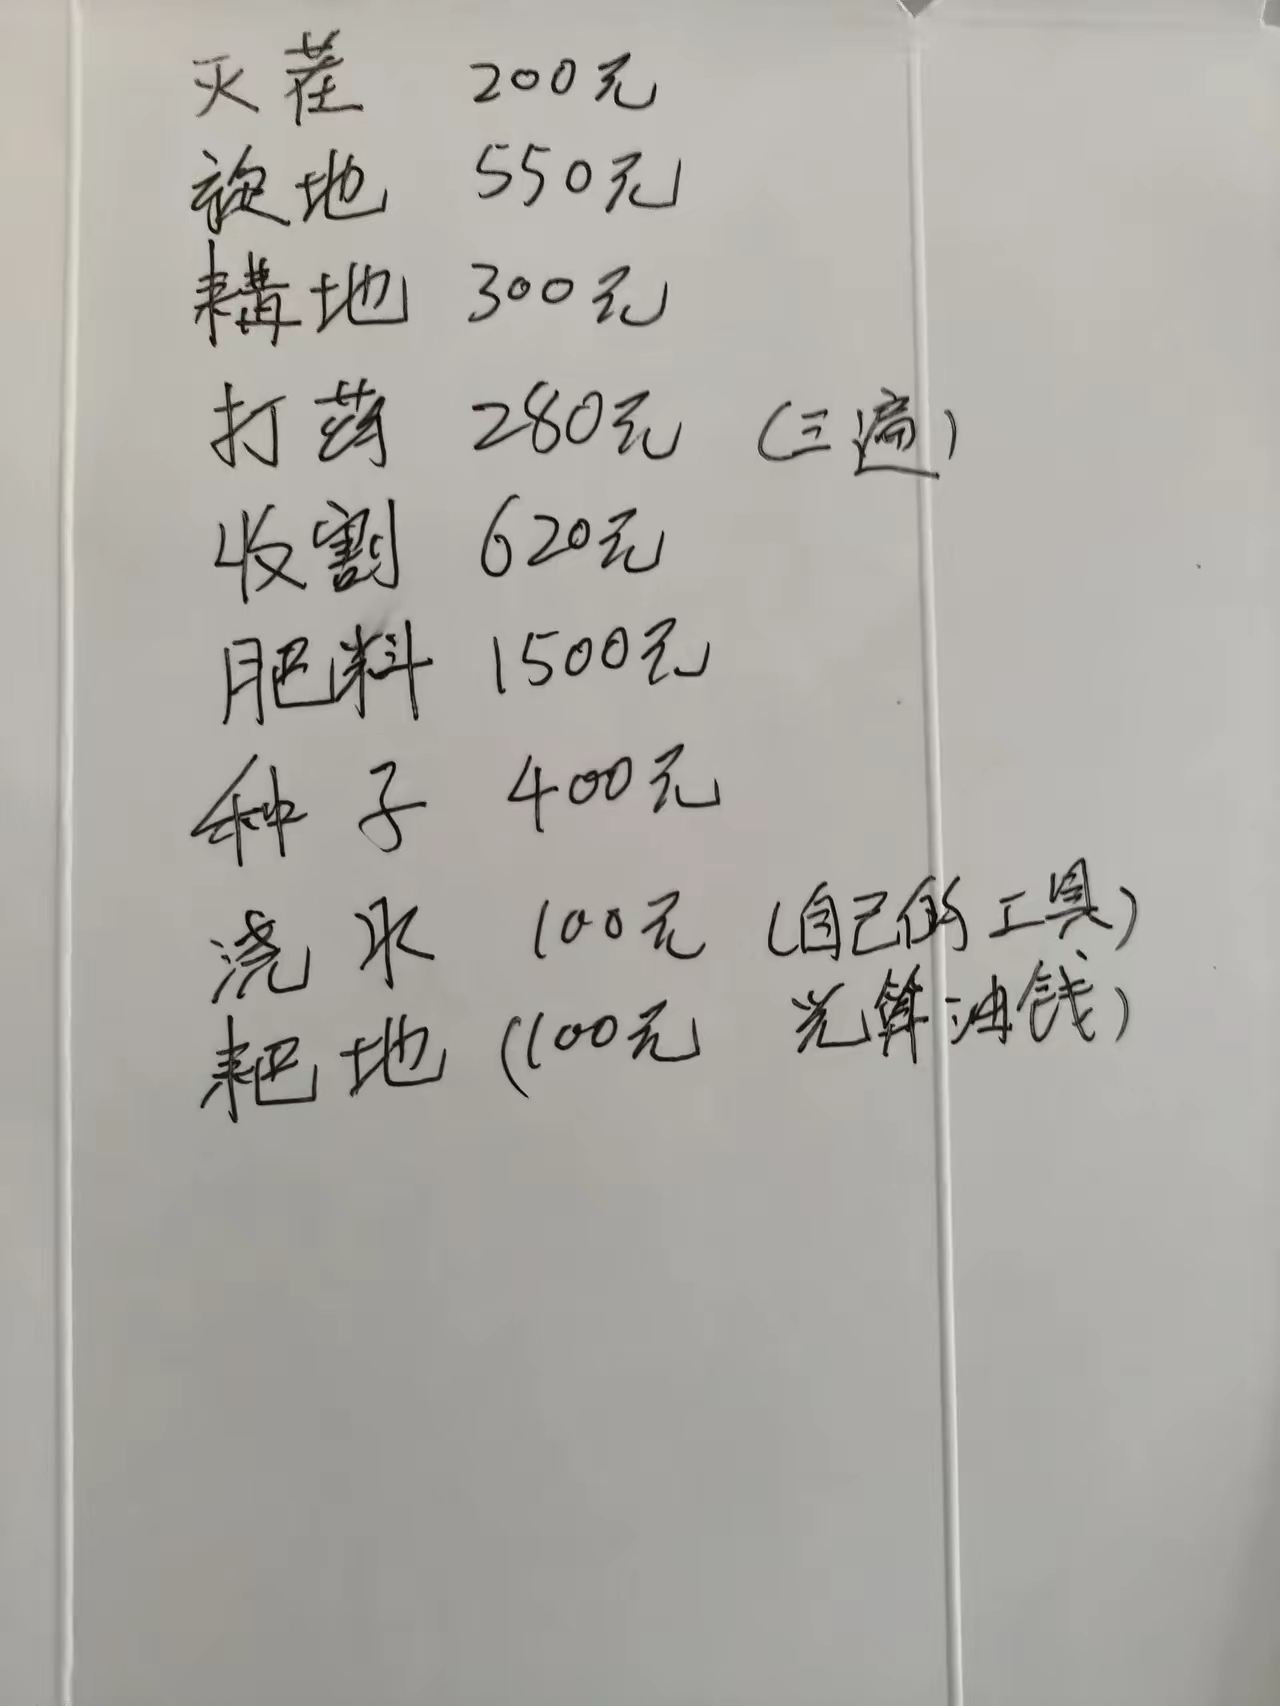 灭茬 200元
旋地 550元
耩地 300元
打药 280元 (三遍)
收割 620元
肥料 1500元
种子 400元
浇水 100元 (自己的工具)
耙地 (100元 光算油钱)